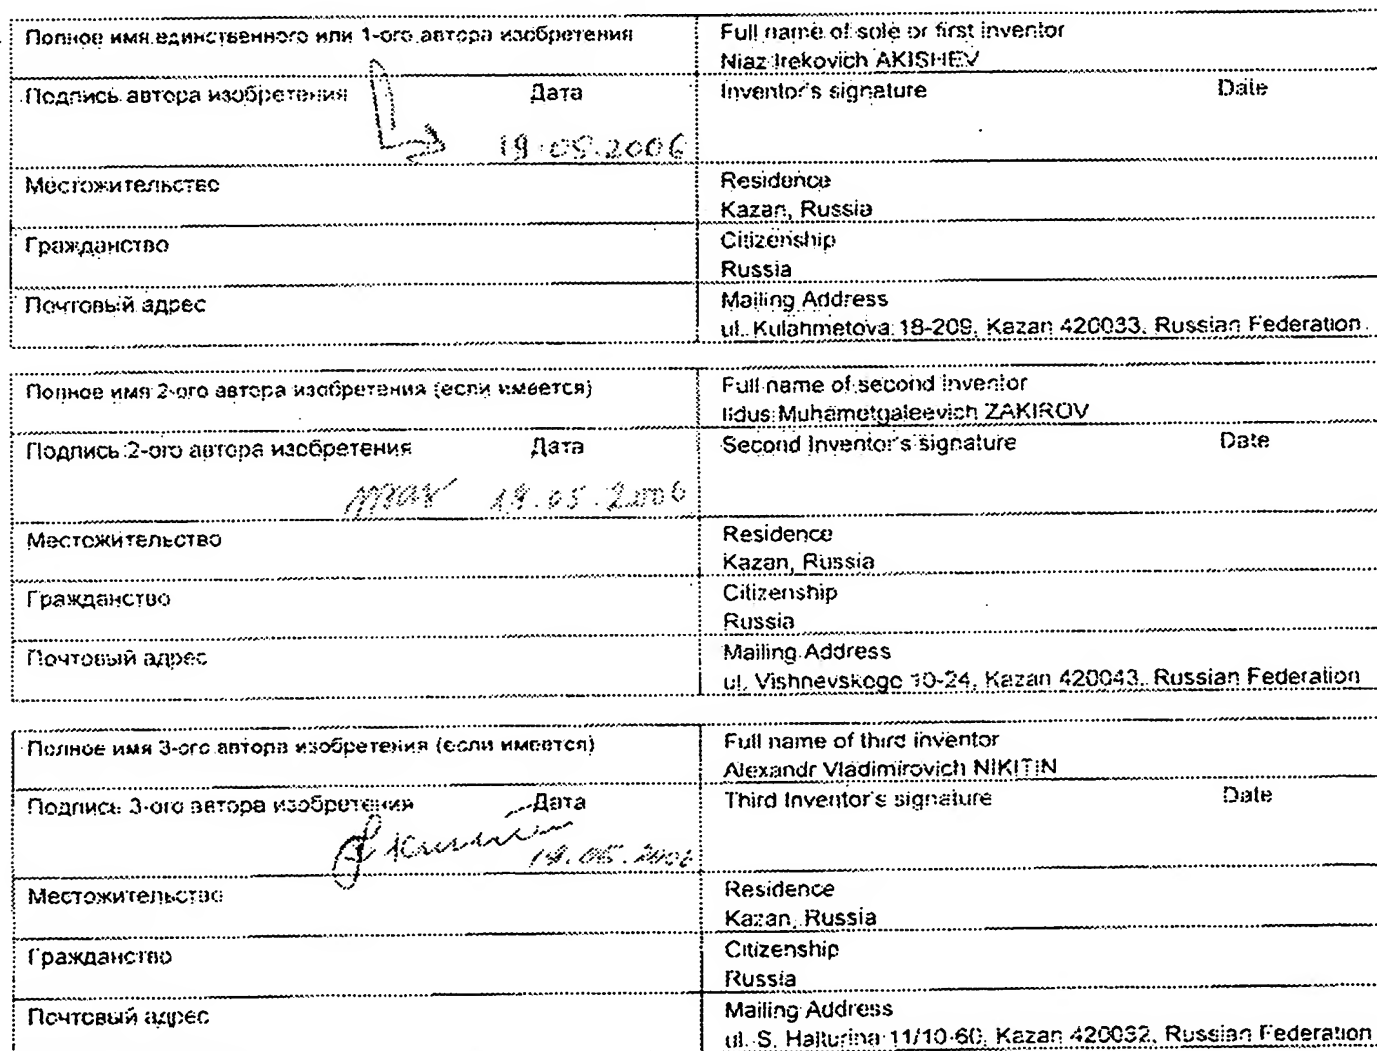 Полное имя единственного или 1-ого автора изобретения
Full name of sole or first inventor
Niaz Irekovich AKISHEV
Подпись автора изобретения Дата
Inventor's signature Date
19.05.2006
Местожительство
Residence
Kazan, Russia
Гражданство
Citizenship
Russia
Почтовый адрес
Mailing Address
ul. Kulahmetova 18-209, Kazan 420033, Russian Federation
Полное имя 2-ого автора изобретения (если имеется)
Full name of second inventor
Ildus Muhametgaleevich ZAKIROV
Подпись 2-ого автора изобретения Дата
Second Inventor's signature Date
19.05.2006
Местожительство
Residence
Kazan, Russia
Гражданство
Citizenship
Russia
Почтовый адрес
Mailing Address
ul. Vishnevskogo 10-24, Kazan 420043, Russian Federation
Полное имя 3-ого автора изобретения (если имеется)
Full name of third inventor
Alexandr Vladimirovich NIKITIN
Подпись 3-ого автора изобретения Дата
Third Inventor's signature Date
19.05.2006
Местожительство
Residence
Kazan, Russia
Гражданство
Citizenship
Russia
Почтовый адрес
Mailing Address
ul. S. Halturina 11/10-60, Kazan 420032, Russian Federation